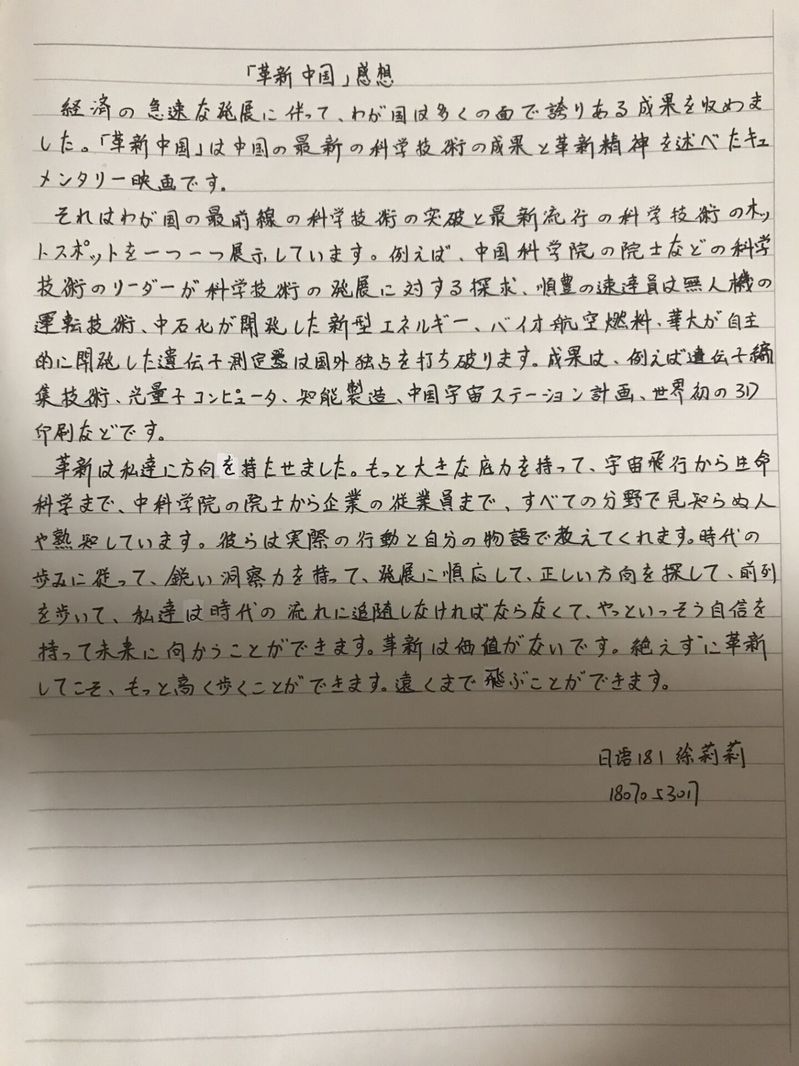 「革新中国」感想
経済の急速な発展に伴って、わが国は多くの面で誇りある成果を収めま
した。「革新中国」は中国の最新の科学技術の成果と革新精神を述べたキュ
メンタリー映画です。
それはわが国の最前線の科学技術の突破と最新流行の科学技術のホッ
トスポットを一つ一つ展示しています。例えば、中国科学院の院士などの科学
技術のリーダーが科学技術の発展に対する探求、順豊の速達員は無人機の
運転技術、中石化が開発した新型エネルギー、バイオ航空燃料、華大が自主
的に開発した遺伝子測定器は国外独占を打ち破ります。成果は、例えば遺伝子編
集技術、光量子コンピュータ、知能製造、中国宇宙ステーション計画、世界初の3D
印刷などです。
革新は私達に方向を持たせました。もっと大きな底力を持って、宇宙飛行から生命
科学まで、中科学院の院士から企業の従業員まで、すべての分野で見知らぬ人
や熟知しています。彼らは実際の行動と自分の物語で教えてくれます。時代の
歩みに従って、鋭い洞察力を持って、発展に順応して、正しい方向を探して、前列
を歩いて、私達は時代の流れに追随しなければならなくて、やっといっそう自信を
持って未来に向かうことができます。革新は価値がないです。絶えずに革新
してこそ、もっと高く歩くことができます。遠くまで飛ぶことができます。
日语181 徐莉莉
1807053017